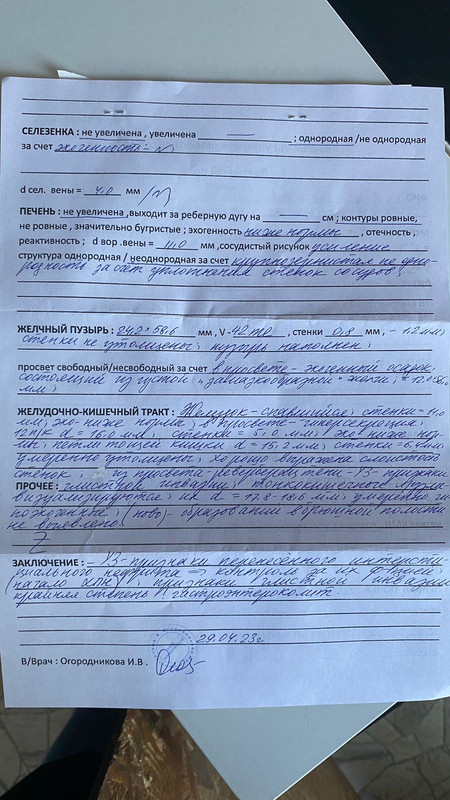 СЕЛЕЗЕНКА : не увеличена , увеличена ; однородная /не однородная
за счет эхогенность – N ;
d сел. вены = 4,0 мм /N/
ПЕЧЕНЬ : не увеличена ,выходит за реберную дугу на см ; контуры ровные,
не ровные , значительно бугристые ; эхогенность ниже нормы , отечность ,
реактивность ; d вор .вены = 11,0 мм ,сосудистый рисунок усиление
структура однородная / неоднородная за счет крупнозернистая не одно-
родность за счет уплотнения стенок сосудов ;
ЖЕЛЧНЫЙ ПУЗЫРЬ : 24,2 * 58,6 мм , V - 42 ml , стенки 0,8 мм , – 1,2 мм ;
стенки не утолщены ; пузырь наполнен ;
просвет свободный/несвободный за счет в просвете – эхогенный осадок,
состоящий из густой "замазкообразной" желчи,
мм ;
ЖЕЛУДОЧНО-КИШЕЧНЫЙ ТРАКТ : Желудок – спавшийся ; стенки = 11,0
мм ; эхо- ниже нормы ; в просвете – гиперсекреция ;
12п/к d = 16,0 мм ; стенки = 5,0 мм ; эхо ниже нор-
мы ; петли тощей кишки d = 15,2 мм ; стенки = 5,4 мм
умеренно утолщены ; хорошо выражена слоистость
стенок ; из просвета реверберац. тени – УЗ – признаки
ПРОЧЕЕ : глистной инвазии ;
визуализируются ; их d = 17,8-18,6 мм ; умеренно ги-
поэхогенные ; (ново) – образований в брюшной полости
не выявлено
Z
ЗАКЛЮЧЕНИЕ : УЗ – признаки перенесённого интерсти-
циального нефрита => контроль за их функцией
(начало ХПН) ; признаки глистной инвазии
крайняя степень гастроэнтероколит.
29.04.23г
В/Врач : Огородникова И.В .